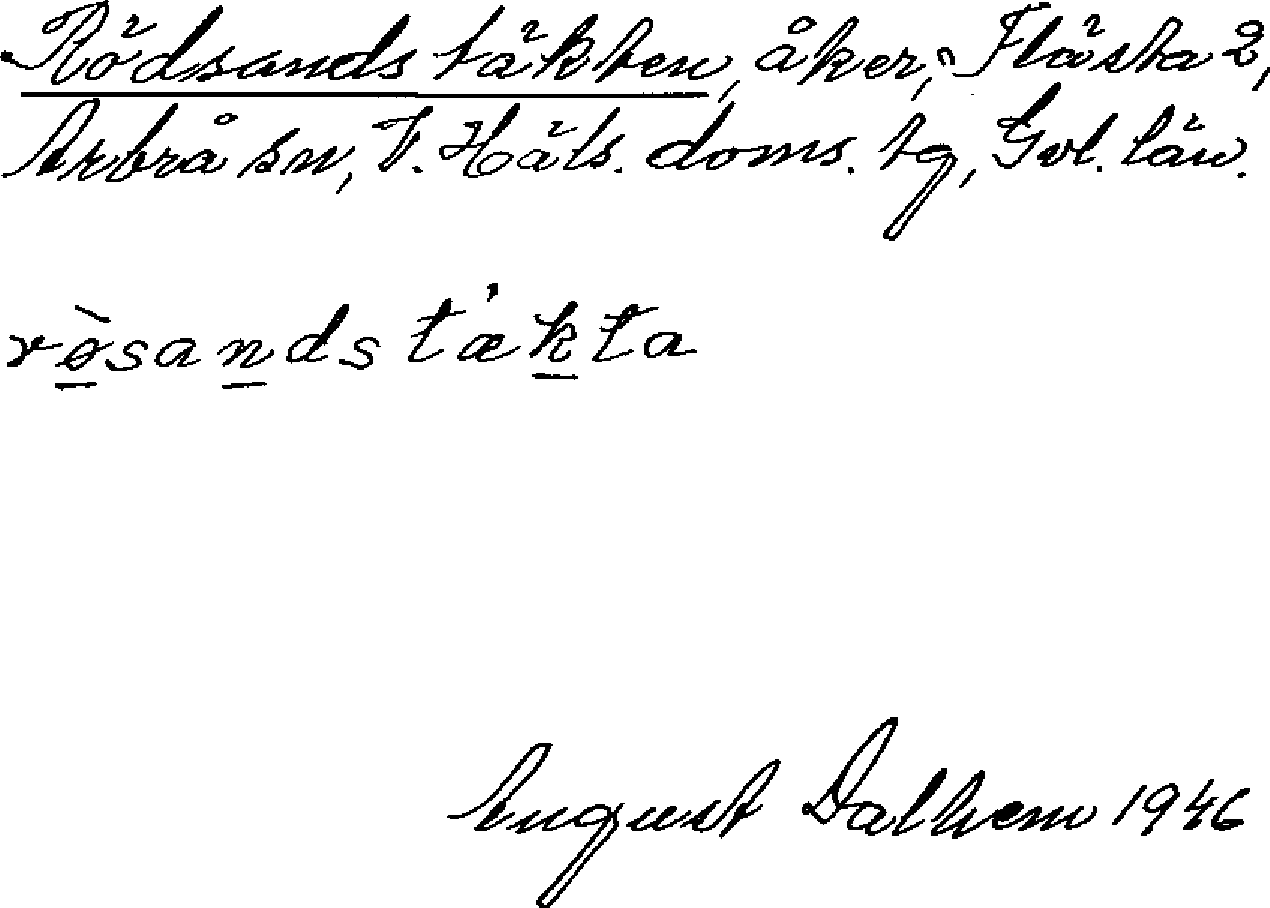 Rödsandstäkten, åker, Flästa 2,
Arbrå sn, V. Häls. doms. tg, Gvl. län.
rø̀sandstækta
August Dalhem 1946